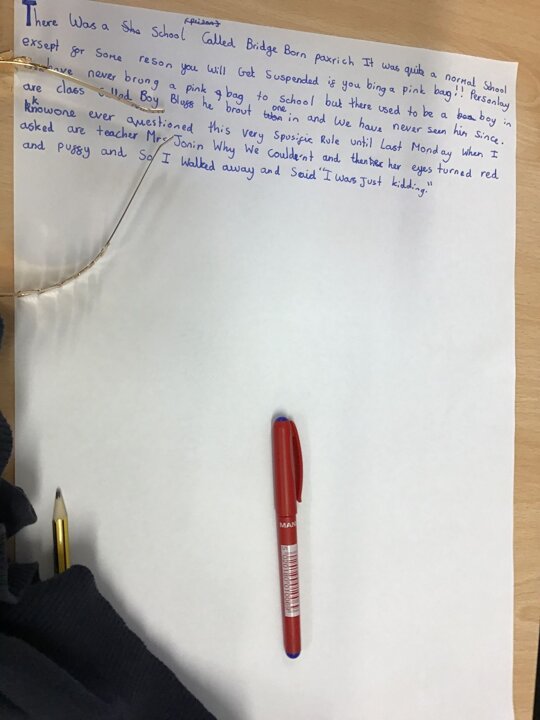 There Was a School Called Bridge Born paxrich It was quite a normal School
exsept for Some reson you will Get Suspended is you bing a pink bag!! Personlay
have never brung a pink bag to School but there used to be a boy in
are class called Boy Blass he brout one in and We have never seen him since.
knowone ever questioned this very Spusific Rule until Last Monday when I
asked are teacher Mrs Jonin Why We Couldent and then her eyes turned red
and puggy and So I Walked away and Said "I was Just kidding."
MAN